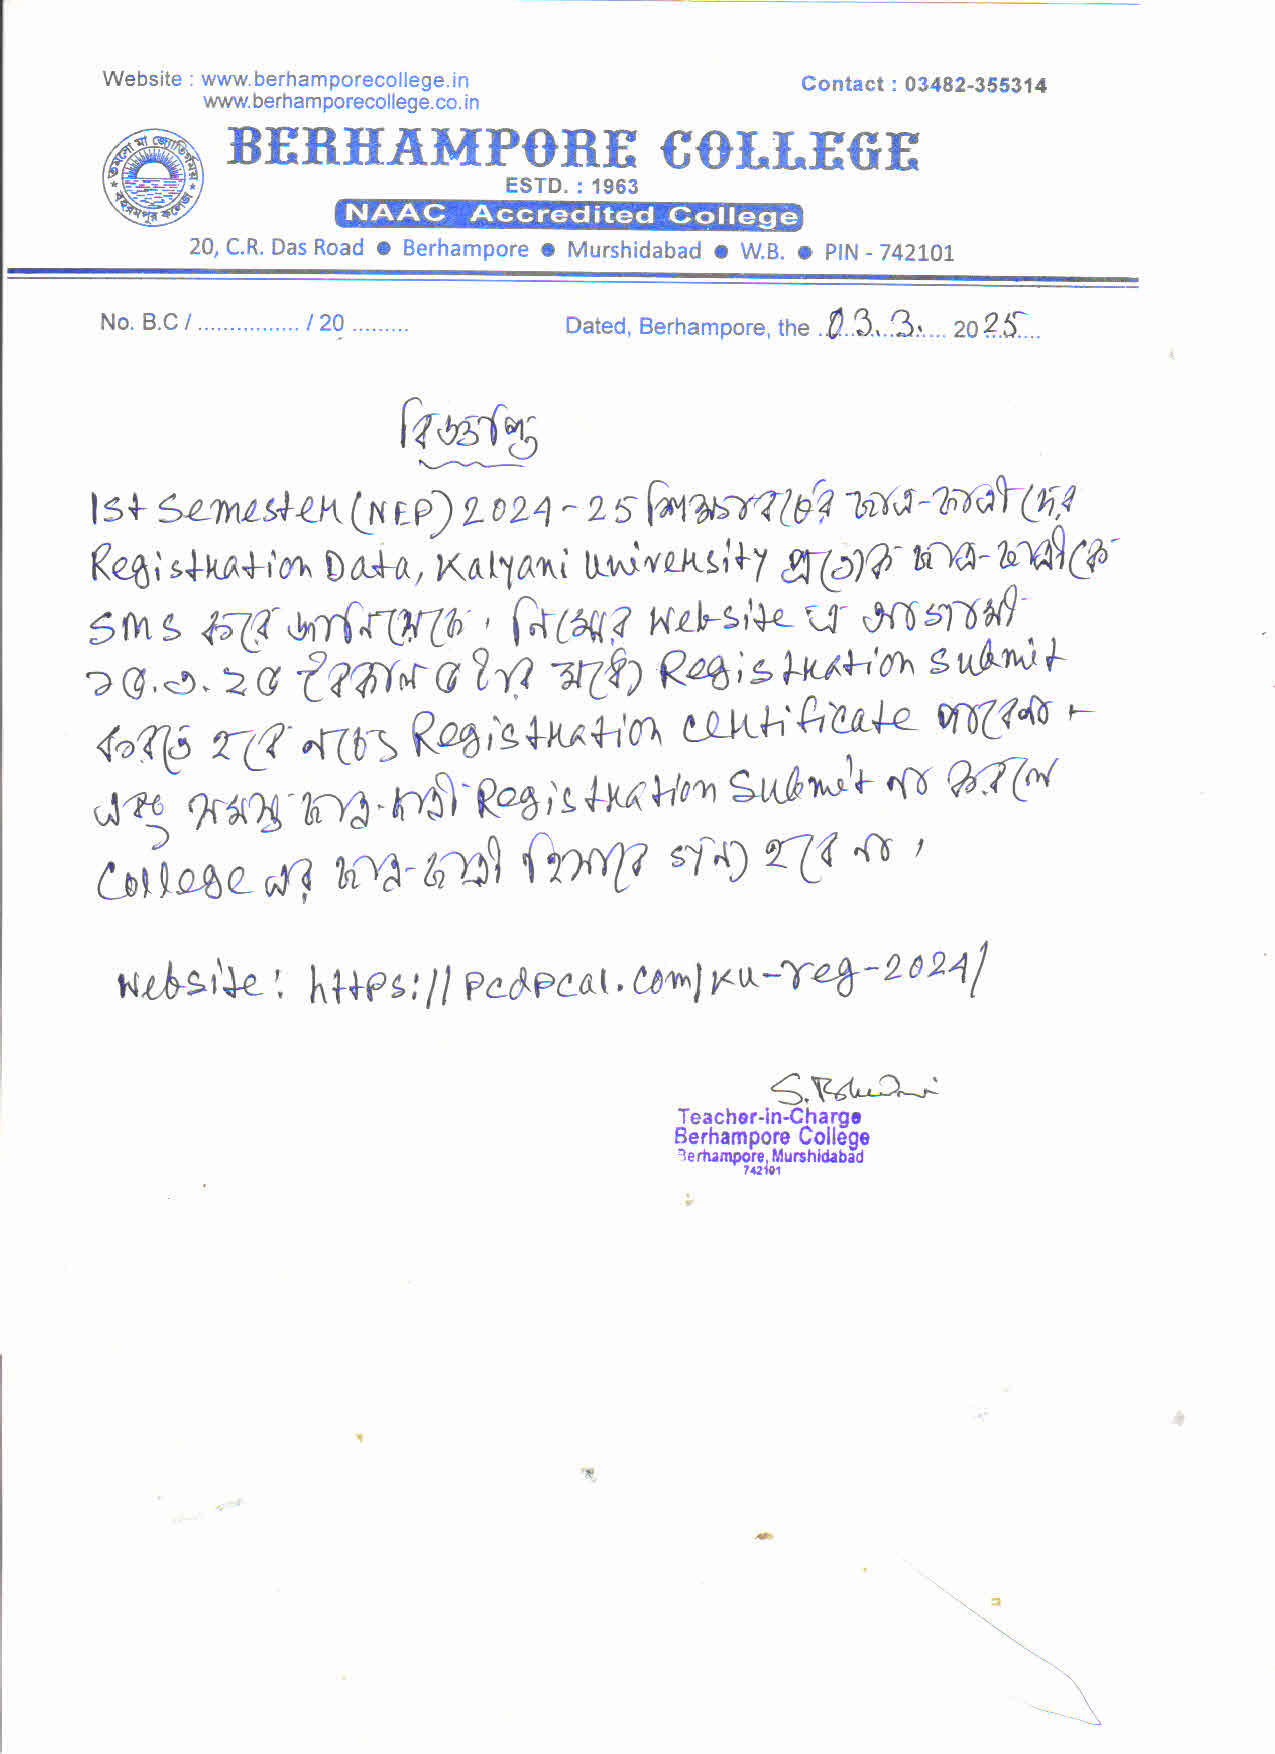 Website : www.berhamporecollege.in
www.berhamporecollege.co.in
Contact : 03482-355314
তমসো মা জ্যোতির্গময়
বহরমপুর কলেজ
BERHAMPORE COLLEGE
ESTD. : 1963
NAAC Accredited College
20, C.R. Das Road ● Berhampore ● Murshidabad ● W.B. ● PIN - 742101
No. B.C / ................ / 20 .........
Dated, Berhampore, the 03.3. 2025
বিজ্ঞপ্তি
1st Semester (NEP) 2024-25 শিক্ষাবর্ষের ছাত্র-ছাত্রীদের
Registration Data, Kalyani University প্রত্যেক ছাত্র-ছাত্রীকে
SMS করে জানিয়েছে। নিম্নের website এ আগামী
১৫.৩.২৫ বৈকাল ৫ টার মধ্যে Registration Submit
করতে হবে নচেৎ Registration certificate পাবেনা-
এবং সমস্ত ছাত্র-ছাত্রী Registration Submit না করলে
College এর ছাত্র-ছাত্রী হিসাবে গন্য হবে না।
website: https://pcdpcal.com/ku-reg-2024/
Teacher-in-Charge
Berhampore College
Berhampore, Murshidabad
742101